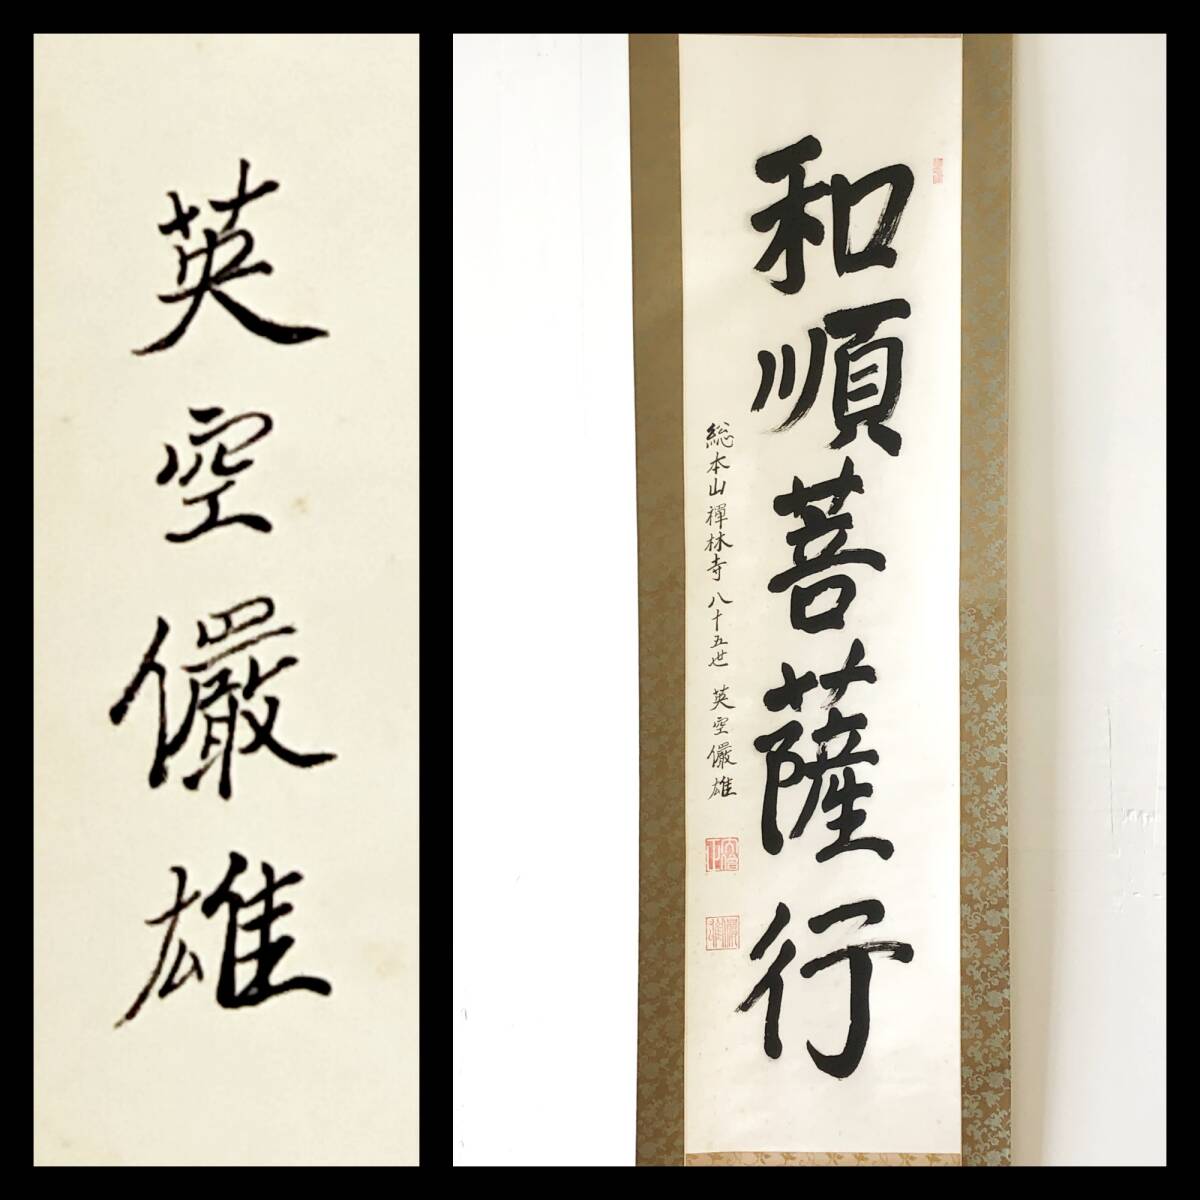 英空儼雄
和順菩薩行
総本山禪林寺 八十五世 英空儼雄